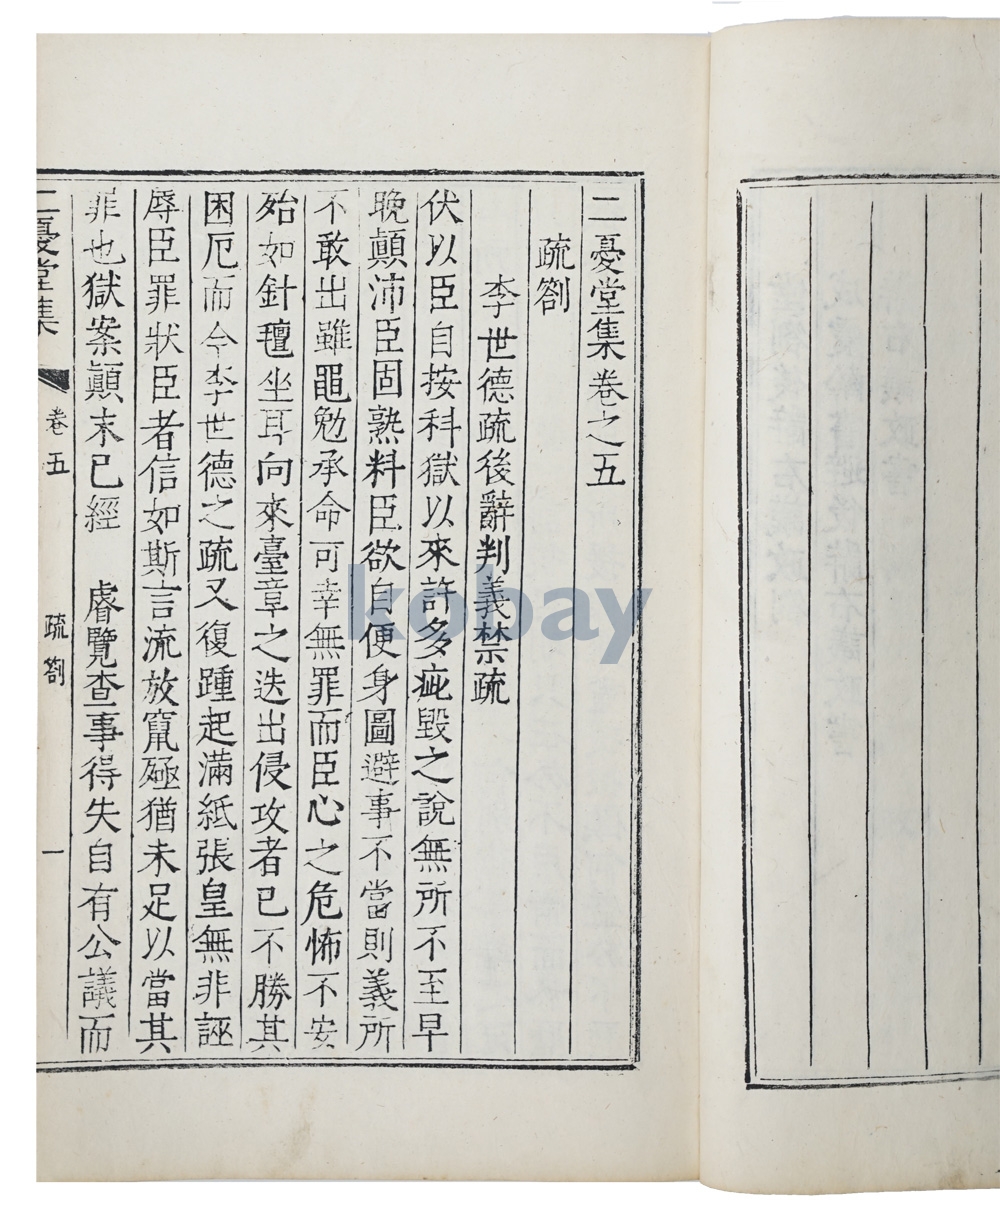 二憂堂集卷之五
疏劄
李世德疏後辭判義禁疏
伏以臣自按科獄以來許多疵毀之說無所不至早
晩顚沛臣固熟料臣欲自便身圖避事不當則義所
不敢出雖黽勉承命可幸無罪而臣心之危怖不安
殆如針氊坐耳向來臺章之迭出侵攻者已不勝其
困厄而今李世德之疏又復踵起滿紙張皇無非誣
辱臣罪狀臣者信如斯言流放竄殛猶未足以當其
罪也獄案顚末已經 睿覽查事得失自有公議而
二憂堂集 卷五 疏劄 一
kobay